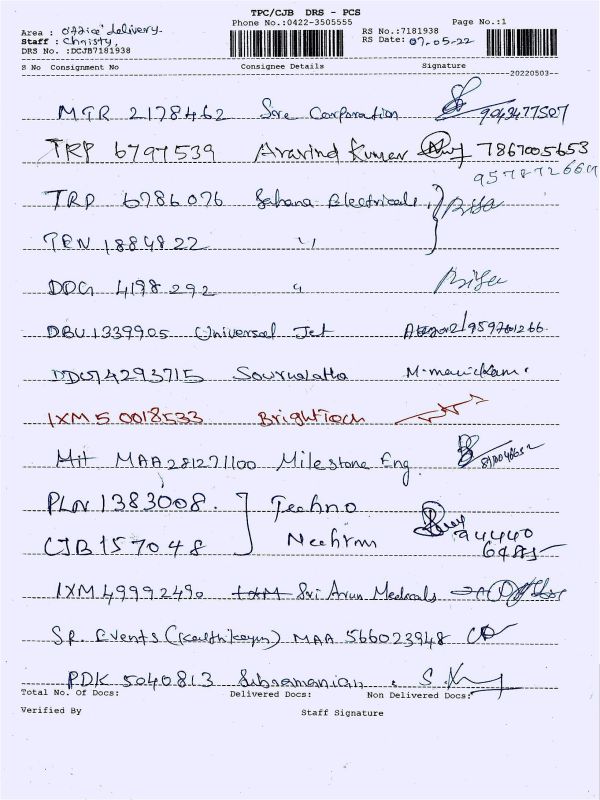 TPC/CJB DRS - PCS
Phone No.:0422-3505555 Page No.:1
Area : Office delivery. RS No.:7181938
Staff : Christy, RS Date: 07-05-22
DRS No. :DCJB7181938
S No Consignment No Consignee Details Signature
20220503
MTR 2178462 Sore Corporation 9043477507
TRP 6797539 Aravind Kumar 7867005653
TRP 6786076 Sahana Electricals, Briya
TEN 1884822 "
DDG 4198292 " Briya
DBU 1339905 Universal Jet 9597601266
14293715 M. manickam.
IXM 5 0018533 BrightTech
MAA 281271100 Milestone Eng.
PLN 1383008. Techno
CJB 157048 94440
IXM 49992490 Sri Arun Medicals
SR Events (Karthikeyn) MAA 566023948
PDK 5040813 Subramanian. S.
Total No. Of Docs: Delivered Docs: Non Delivered Docs:
Verified By Staff Signature